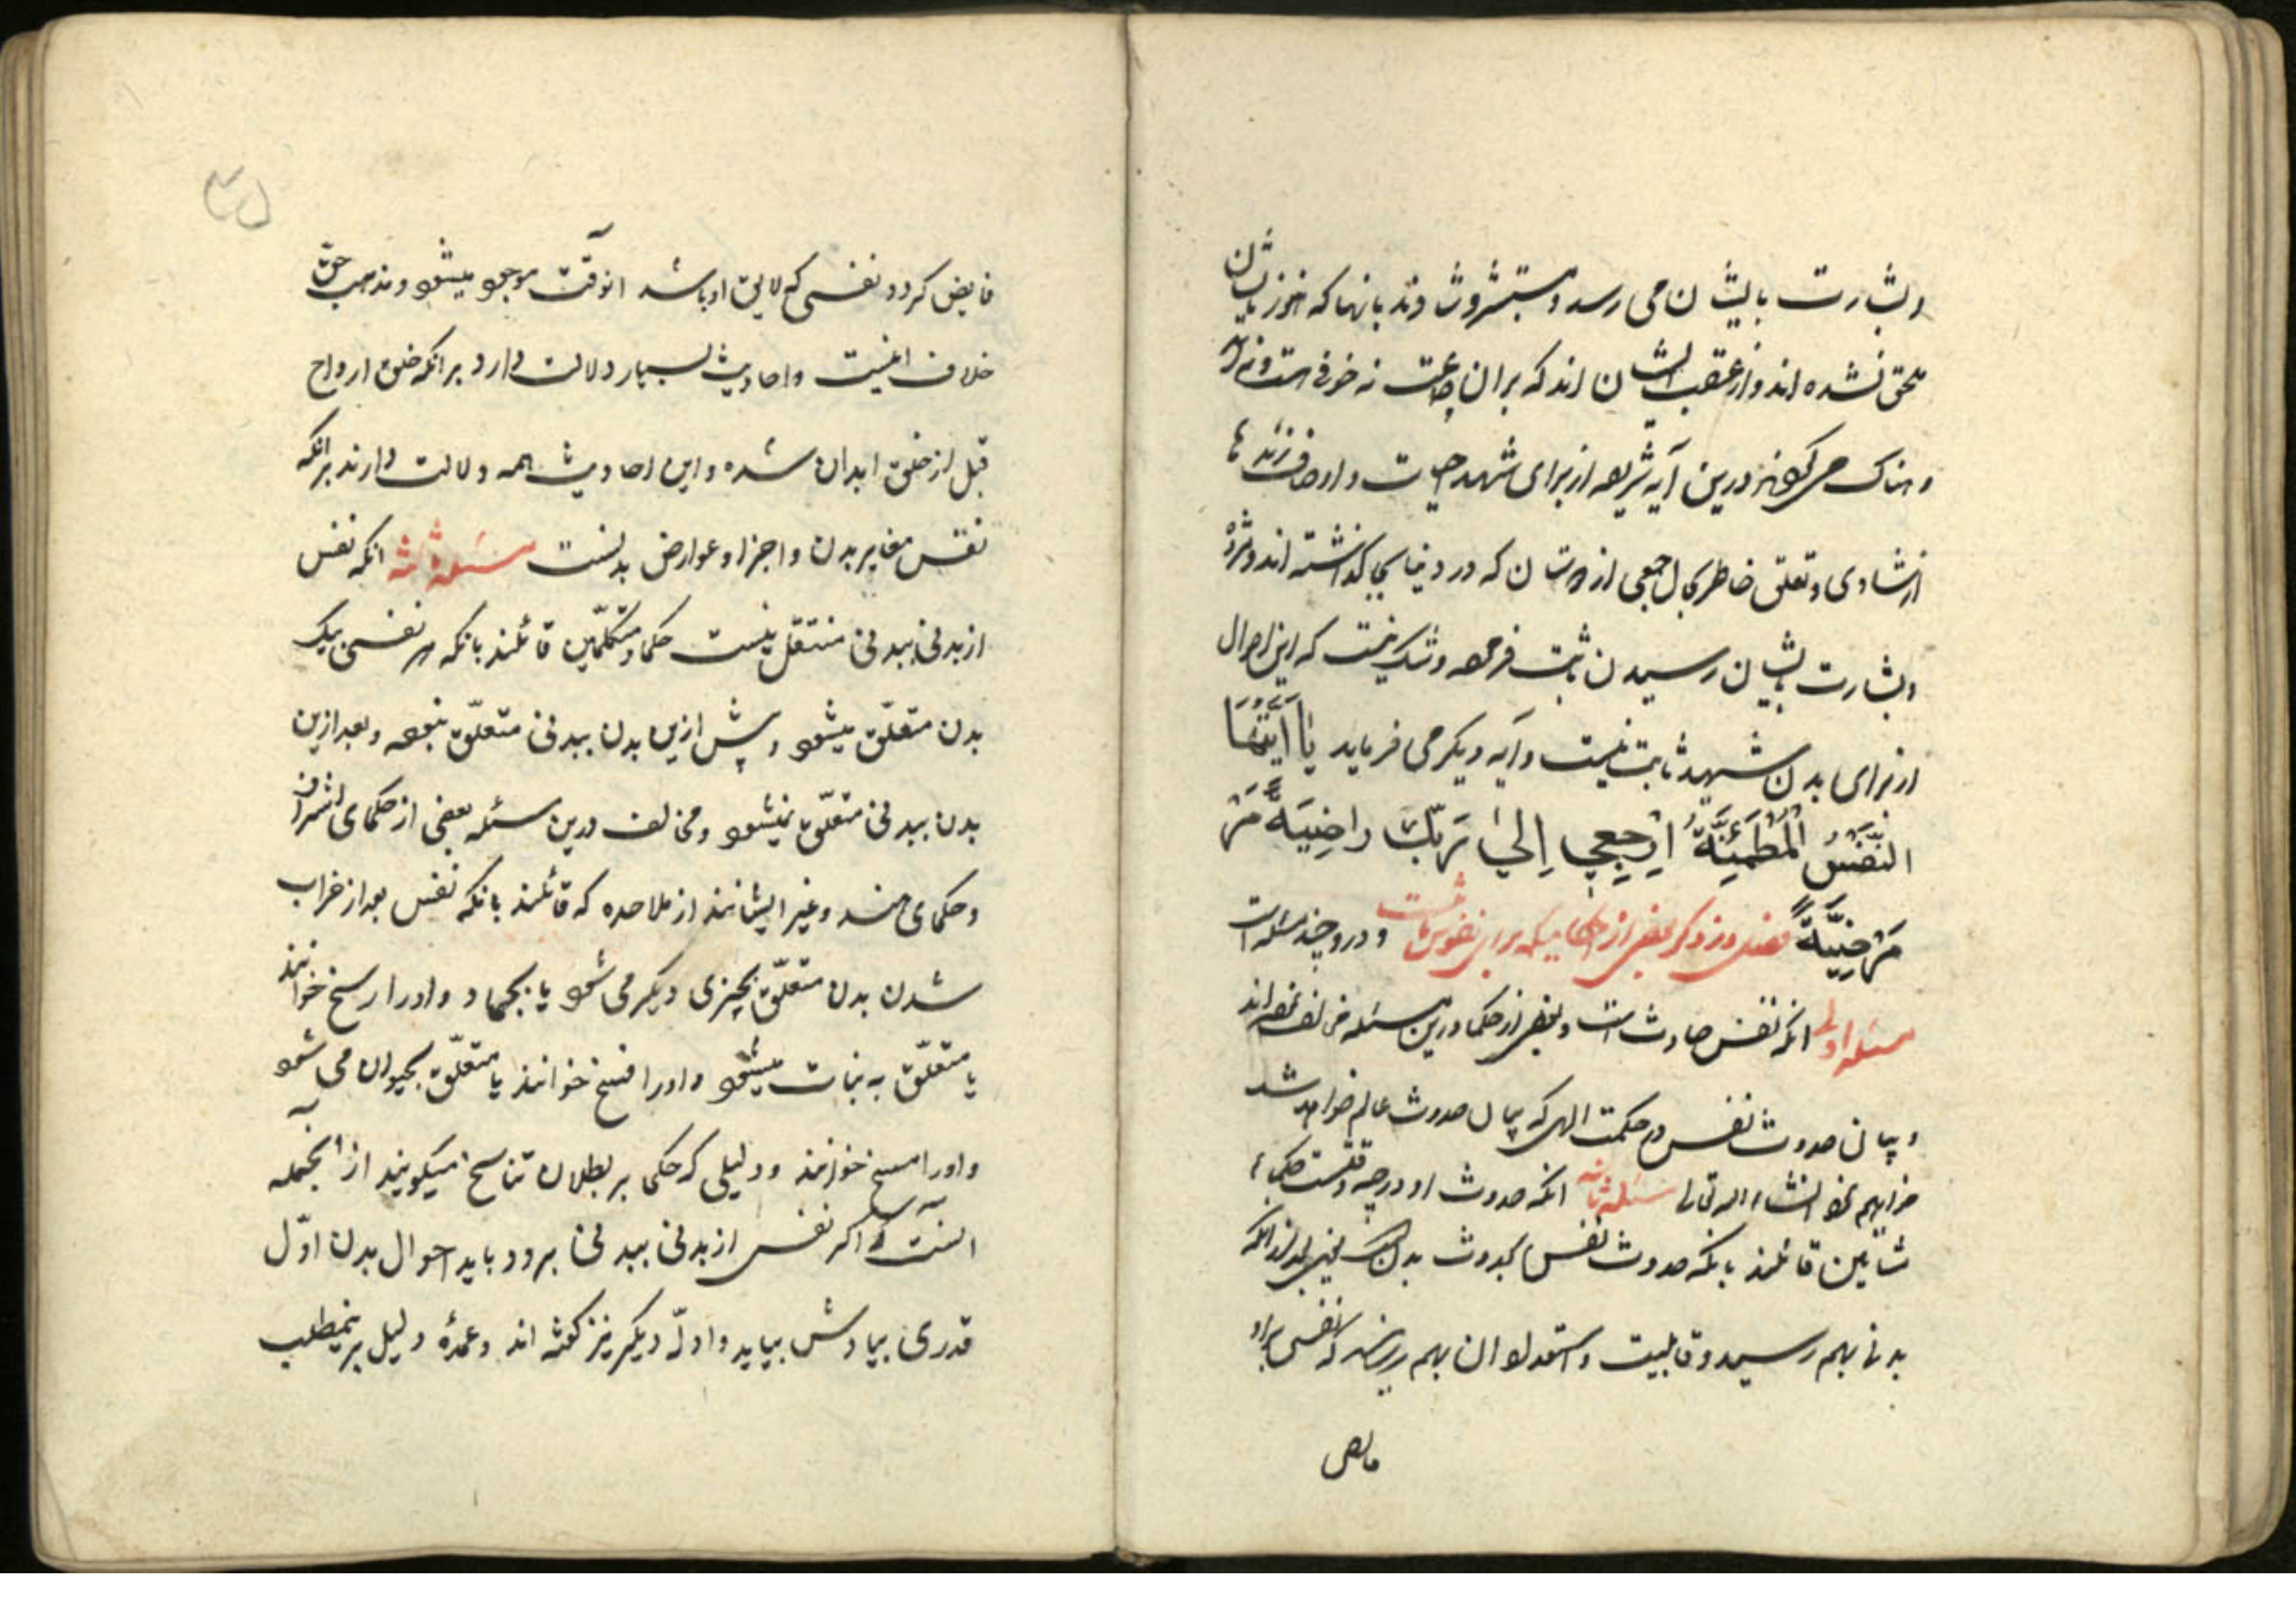 و بشارت بایشان می رسد و مستبشر و شادند بانها که هنوز بایشان
ملحق نشده اند و از عقب ایشان اند که بر ان جماعت نه خوفی هست و نه
درین آیه شریفه از برای شهدا حیات و
از شادی و تعلق خاطر بحال جمعی از دوستان که در دنیا بجا گذاشته اند و مژده
و بشارت بایشان رسیدن ثابت فرموده و شک نیست که این احوال
از برای بدن شهید ثابت نیست و آیه دیگر می فرماید یَا اَیَّتُهَا
النَّفْسُ الْمُطْمَئِنَّةُ ارْجِعِي اِلَىٰ رَبِّكِ راضِيَةً مَرْ
مَرْضِيَّةً فصل در ذکر بعضی از احکامیکه برای نفوس ثابتست و درو چند مسئله است
مسئله اولی انکه نفس حادث است و بعضی از حکما درین مسئله مخالف نموده اند
و بیان حدوث نفس در حکمت الهی که بیان حدوث عالم خواهد شد
خواهیم نمود انشاء الله تعالی مسئله ثانیه انکه حدوث او در چه وقتست حکماء
مشایین قائلند بانکه حدوث نفس بحدوث بدنست یعنی بعد از انکه
بدنی بهم رسید و قابلیت و استعداد ان بهم رسانید که نفسی براو
فایض
۳۵
فایض کردد نفسی که لایق او باشد انوقت موجود میشود و مذهب حق
خلاف اینست و احادیث بسیار دلالت دارد بر انکه خلق ارواح
قبل از خلق ابدان شده و این احادیث همه دلالت دارند بر انکه
نفس مغایر بدن و اجزا و عوارض بدنست مسئله ثالثه انکه نفس
از بدنی ببدنی منتقل نیست حکما و متکلّمین قائلند بانکه هر نفسی بیک
بدن متعلّق میشود و پیش ازین بدن ببدنی متعلّق نبوده و بعد ازین
بدن ببدنی متعلّق نمیشود و مخالف درین مسئله بعضی از حکمای اشراق
و حکمای هند و غیر ایشانند از ملاحده که قائلند بانکه نفس بعد از خراب
شدن بدن متعلّق بچیزی دیگر می شود یا بجماد و اورا رسخ خوانند
یا متعلّق به نبات میشود و اورا فسخ خوانند یا متعلّق بحیوان می شود
و اورا مسخ خوانند و دلیلی که حکما بر بطلان تناسخ میکویند از انجمله
انست که اکر نفس از بدنی ببدنی برود باید احوال بدن اوّل
قدری بیادش بیاید و ادلّه دیگر نیز کفته اند و عمدۀ دلیل بر ینمطلب